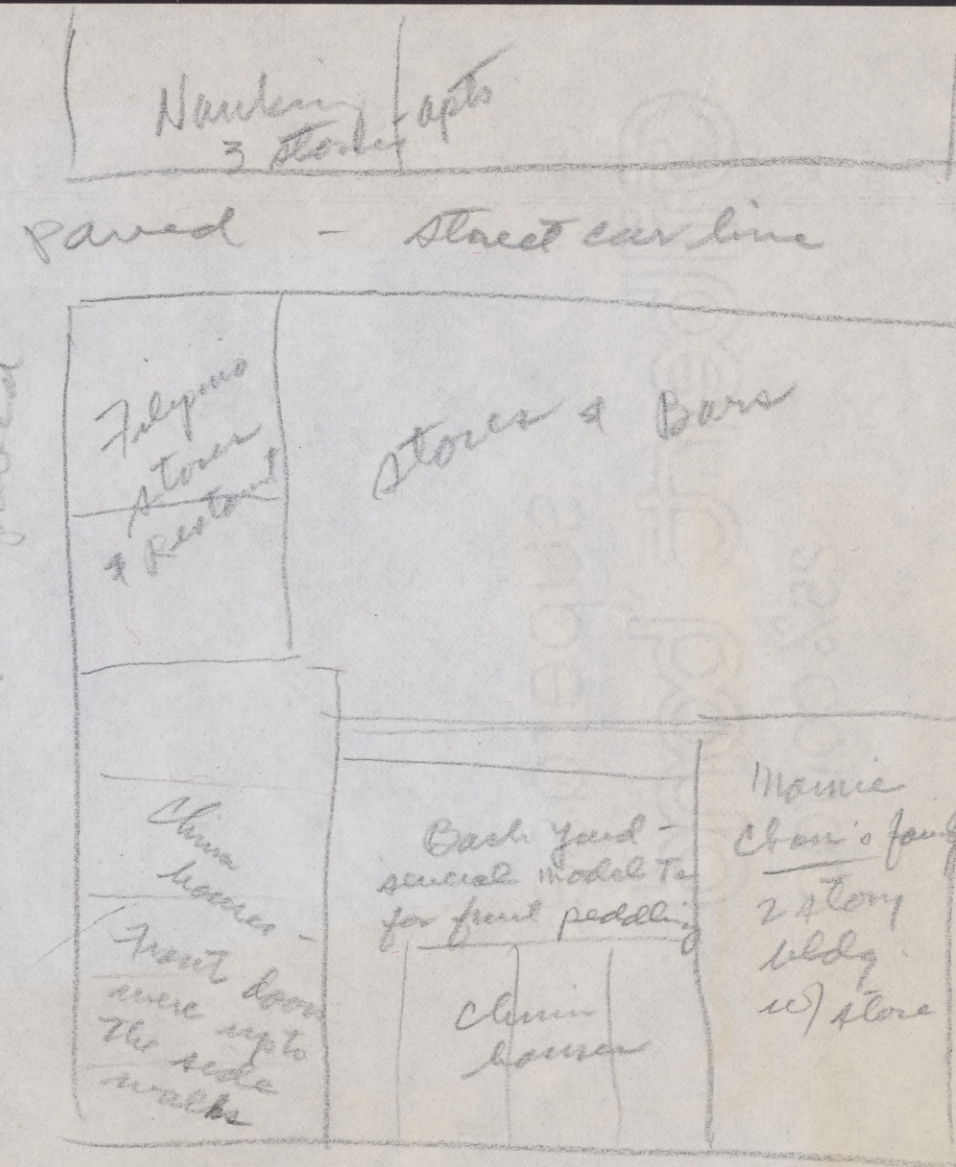 Nanking apts
3 stories
paved - street car line
paved
Filipino
stores
& Restaunt
Stores & Bars
China
houses -
Front doors
were up to
the side
walks
Back yard -
several model Ts
for fruit peddling
China
houses
Mamie
Chan's family
2 story
bldg
w/ store